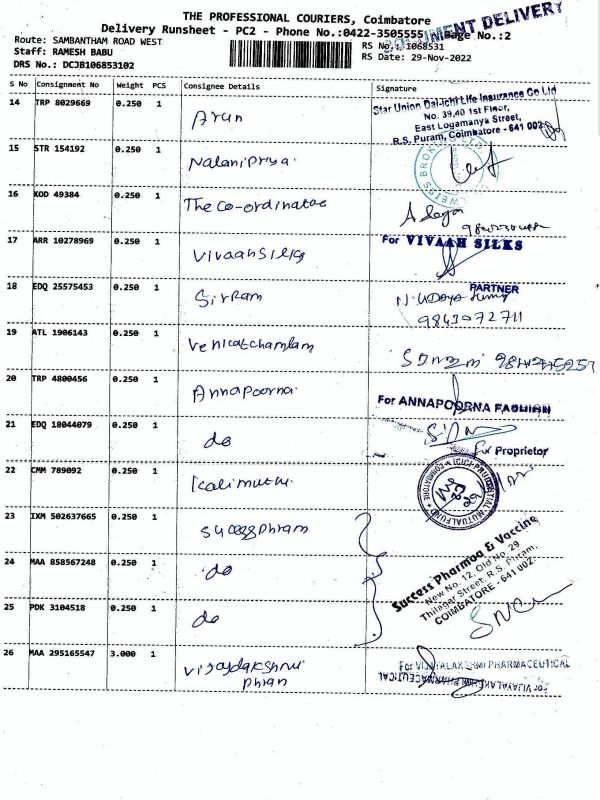 THE PROFESSIONAL COURIERS, Coimbatore
DOCUMENT DELIVERY
Delivery Runsheet - PC2 - Phone No.:0422-3505555 Page No.:2
Route: SAMBANTHAM ROAD WEST
RS No.: 1068531
Staff: RAMESH BABU
RS Date: 29-Nov-2022
DRS No.: DCJB106853102
S No Consignment No Weight PCS Consignee Details Signature
14 TRP 8029669 0.250 1 Arun
Star Union Dai-ichi Life Insurance Co Ltd
No. 39,40 1st Floor,
East Logamanya Street,
R.S. Puram, Coimbatore - 641 002
15 STR 154192 0.250 1 Nalanipriya
16 KOD 49384 0.250 1 The co-ordinator
17 ARR 10278969 0.250 1 Vivaah Silks
For VIVAAH SILKS
PARTNER
18 EDQ 25575453 0.250 1 Sriram
9843072711
19 ATL 1906143 0.250 1 Venkatchamlam
20 TRP 4800456 0.250 1 Annapoorna
For ANNAPOORNA FASHIAN
21 EDQ 18044079 0.250 1 do
For Proprietor
22 CMM 789092 0.250 1 Kalimuthu
ICICI PRUDENTIAL MUTUAL FUND
COIMBATORE
23 IXM 502637665 0.250 1
24 MAA 858567248 0.250 1 do
25 PDK 3104518 0.250 1 do
Success Pharmaa & Vaccine
New No. 12, Old No. 29
Thilagar Street, R.S. Puram,
COIMBATORE - 641 002.
26 MAA 295165547 3.000 1
For VIJAYALAKSHMI PHARMACEUTICAL
For VIJAYALAKSHMI PHARMACEUTICAL